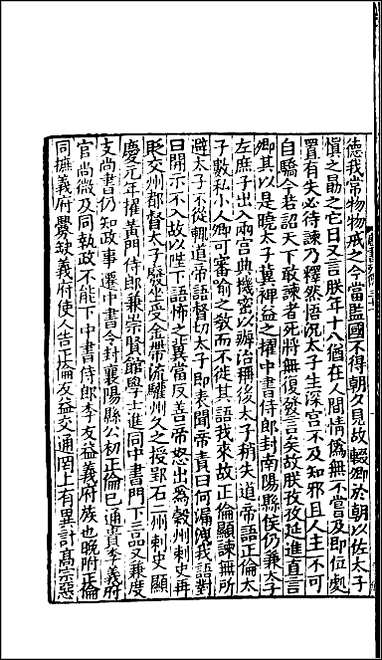 德我常物物戒之今當監國不得朝夕見故輟卿於朝以佐太子
慎之勗之它日又言朕年十八猶在人間情偽無不嘗及即位處
置有失必待諫乃釋然悟況太子生深宮不及知邪且人主不可
自驕今若詔天下敢諫者死將無復發言矣故朕孜孜延進直言
卿其以是曉太子冀裨益之擢中書侍郎封南陽縣侯仍兼太子
左庶子出入兩宮典機密以辦治稱後太子稍失道帝語正倫太
子數私小人卿可審喻之教而不徙其語我來故正倫顯諫無所
避太子不從輒道帝語督切太子即表聞帝責曰何漏洩我語對
曰開示不入故以陛下語怖之冀當反善帝怒出為穀州刺史再
貶交州都督太子廢坐受金帶流驩州久之授郢石二州刺史顯
慶元年擢黃門侍郎兼崇賢館學士進同中書門下三品又兼度
支尚書仍知政事遷中書令封襄陽縣公初正倫已通貴李義府
官尚微及同執政不能下中書侍郎李友益義府族也晚附正倫
同摭義府釁缺義府使人告正倫友益交通罔上有異計高宗惡